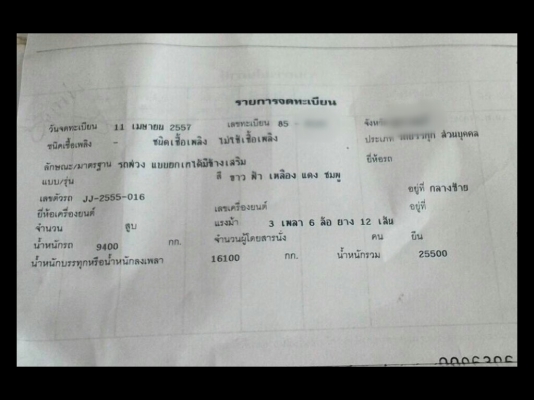 รายการจดทะเบียน
วันจดทะเบียน 11 เมษายน 2557 เลขทะเบียน 85 - จังหวัด
ชนิดเชื้อเพลิง - ชนิดเชื้อเพลิง ไม่ใช้เชื้อเพลิง ประเภท ส่วนบุคคล
ลักษณะ/มาตรฐาน รถพ่วง แบบยกเทได้มีข้างเสริม ยี่ห้อรถ
แบบ/รุ่น สี ขาว ฟ้า เหลือง แดง ชมพู
เลขตัวรถ JJ-2555-016 อยู่ที่ กลางซ้าย
ยี่ห้อเครื่องยนต์ เลขเครื่องยนต์ อยู่ที่
จำนวน สูบ แรงม้า 3 เพลา 6 ล้อ ยาง 12 เส้น
น้ำหนักรถ 9400 กก. จำนวนผู้โดยสารนั่ง คน ยืน
น้ำหนักบรรทุกหรือน้ำหนักลงเพลา 16100 กก. น้ำหนักรวม 25500